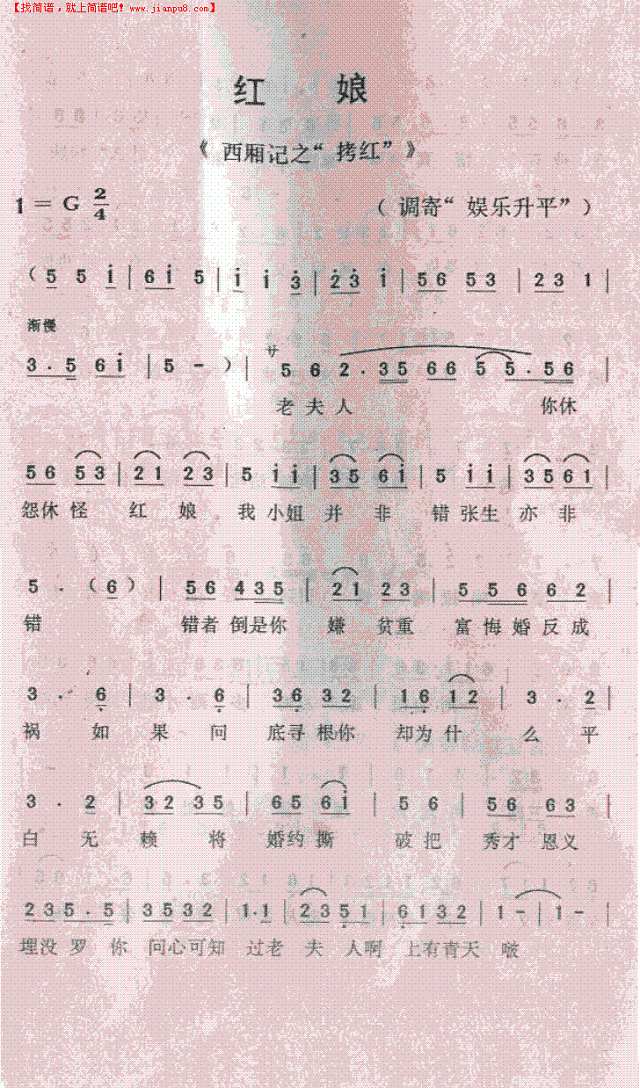 【找简谱，就上简谱吧! www.jianpu8.com】
红 娘
《 西厢记之“ 拷红” 》
1 = G 2/4 （ 调寄“ 娱乐升平” ）
（ 5 5 i | 6 i 5 | i i 3 | 2 3 i | 5 6 5 3 | 2 3 1 |
渐慢
3 . 5 6 i | 5 - ） | サ 5 6 2 . 3 5 6 6 5 5 . 5 6 |
老 夫 人 你 休
5 6 5 3 | 2 1 2 3 | 5 i i | 3 5 6 i | 5 i i | 3 5 6 1 |
怨 休 怪 红 娘 我 小 姐 并 非 错 张 生 亦 非
5 . （ 6 ） | 5 6 4 3 5 | 2 1 2 3 | 5 5 6 6 2 |
错 错 者 倒 是 你 嫌 贫 重 富 悔 婚 反 成
3 . 6 | 3 . 6 | 3 6 3 2 | 1 6 1 2 | 3 . 2 |
祸 如 果 问 底 寻 根 你 却 为 什 么 平
3 . 2 | 3 2 3 5 | 6 5 6 i | 5 6 | 5 6 6 3 |
白 无 赖 将 婚 约 撕 破 把 秀 才 恩 义
2 3 5 . 5 | 3 5 3 2 | 1 . 1 | 2 3 5 1 | 6 1 3 2 | 1 - | 1 - |
埋 没 罗 你 问 心 可 知 过 老 夫 人 啊 上 有 青 天 啵